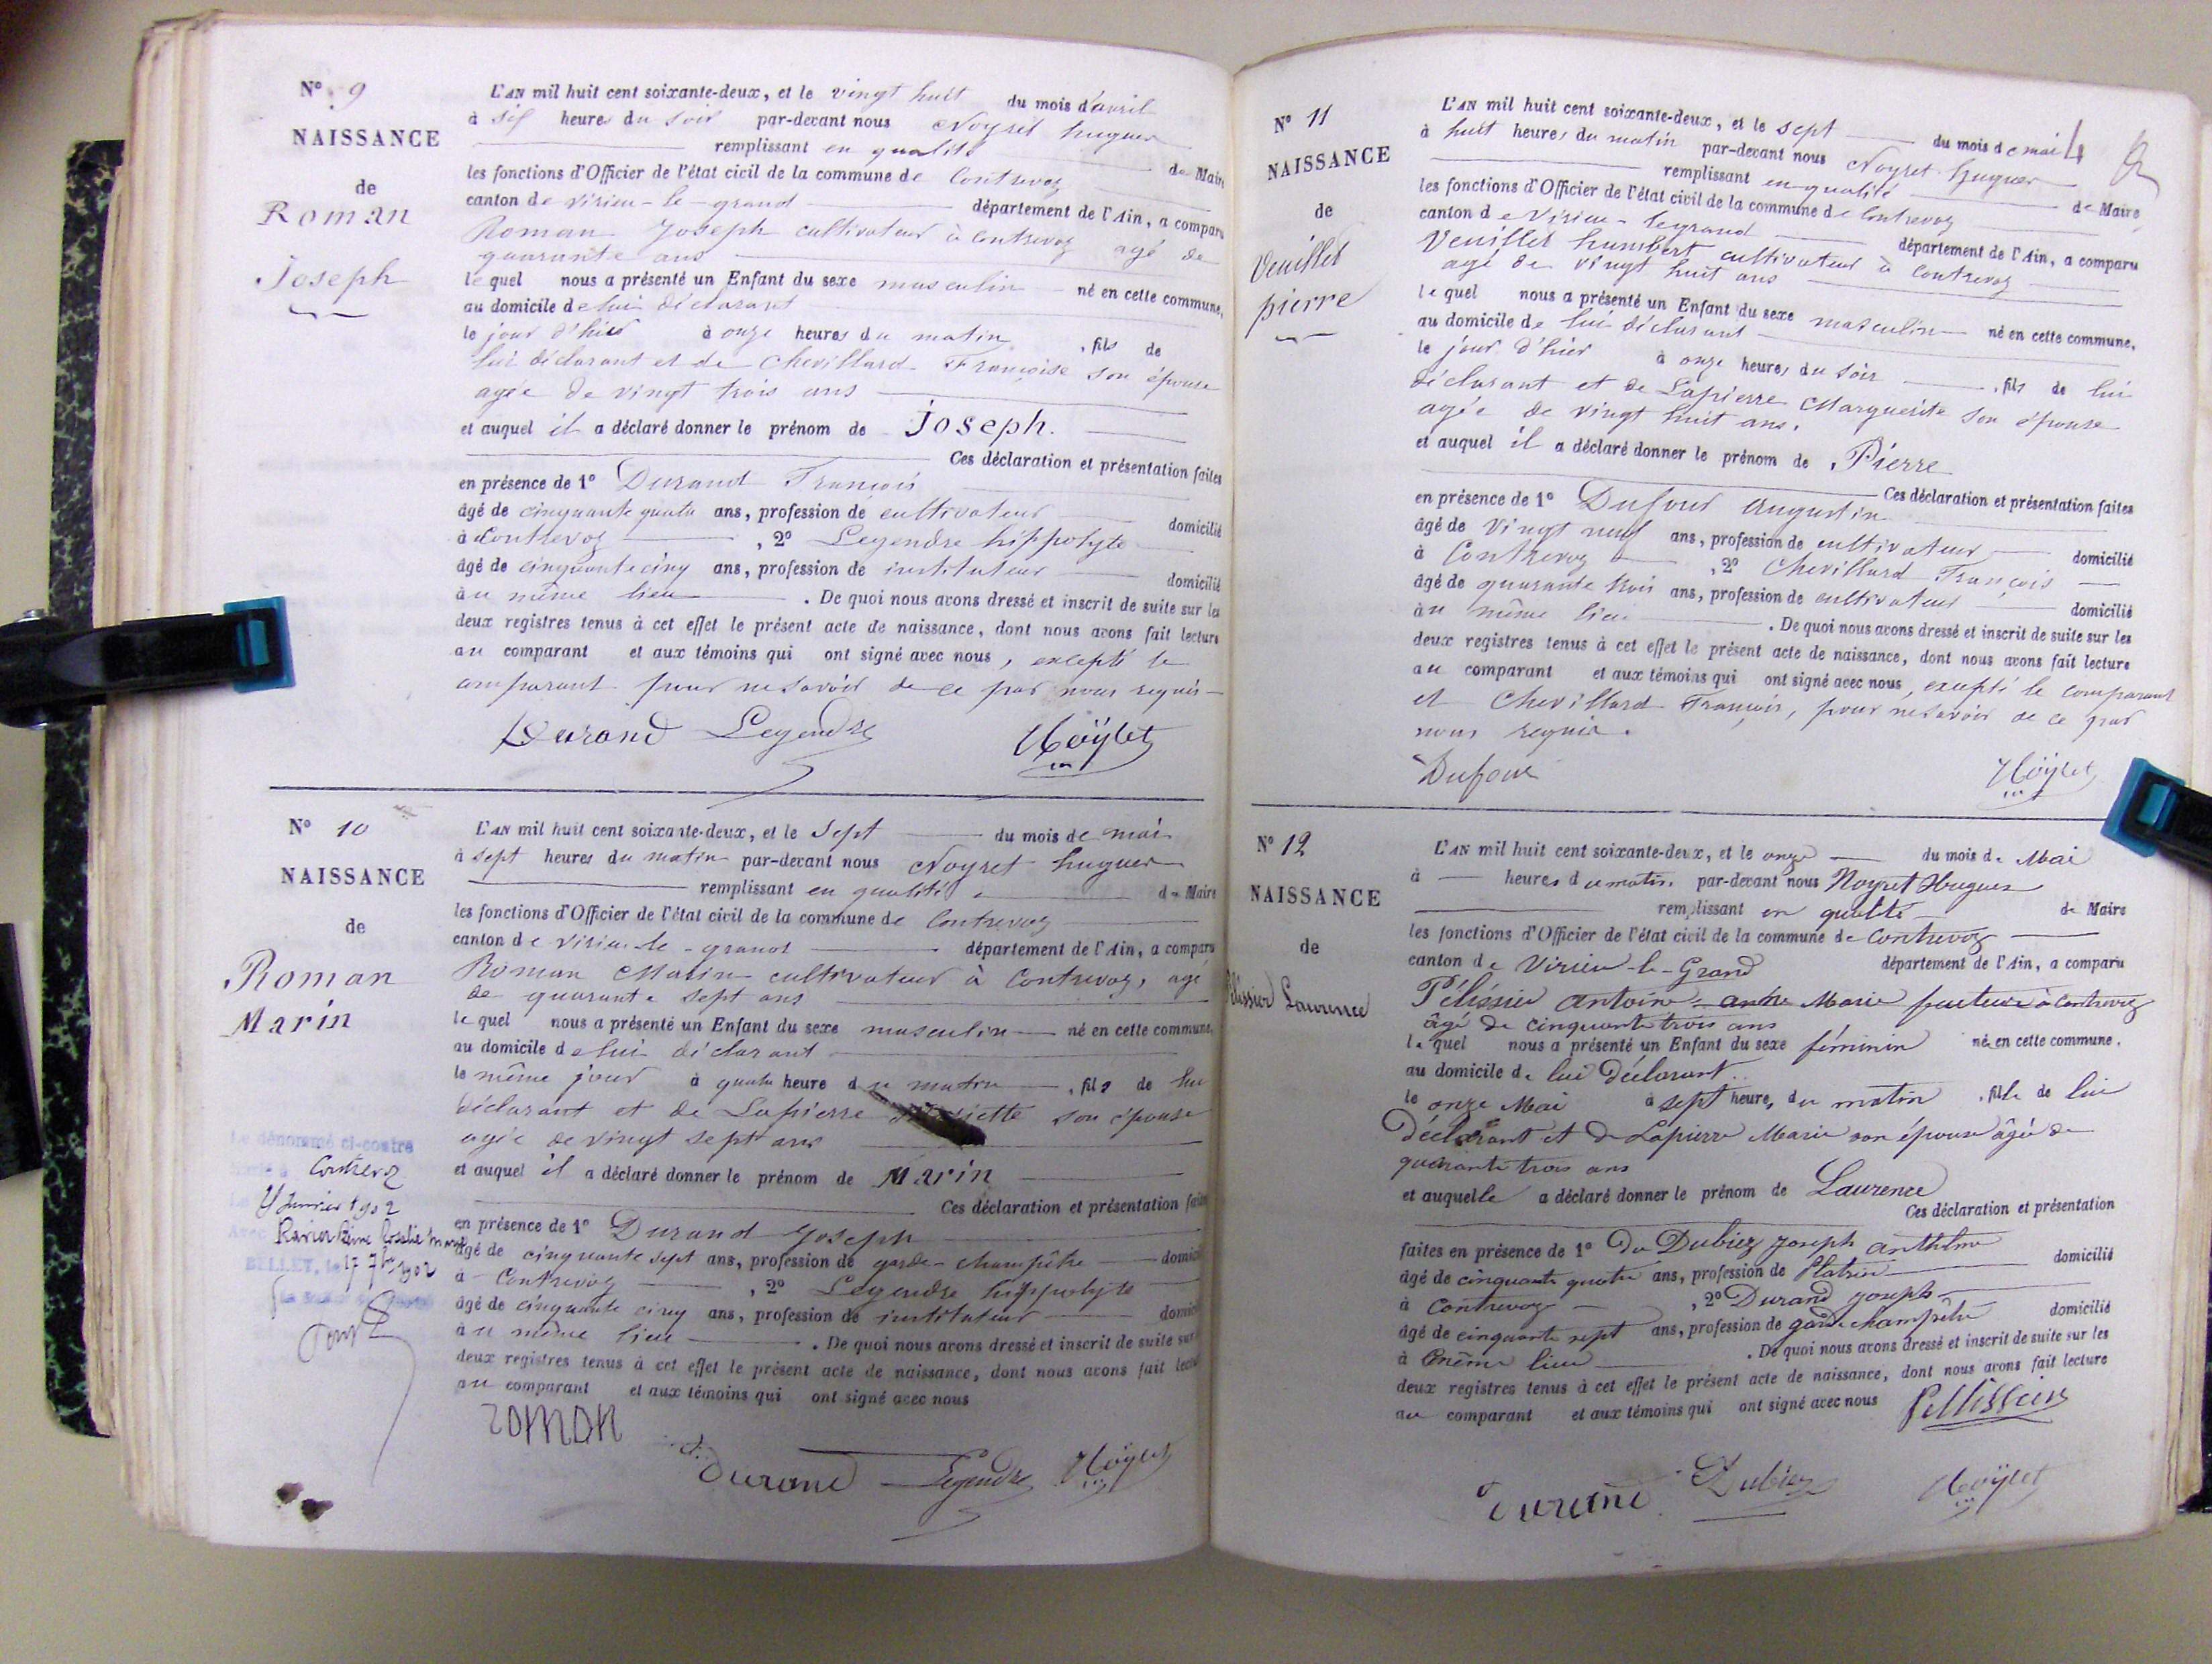 N° 9
NAISSANCE
de
Roman
Joseph
L'AN mil huit cent soixante-deux, et le vingt huit du mois d'avril
à six heures du soir par-devant nous Noyret hugues
remplissant en qualité de Maire
les fonctions d'Officier de l'état civil de la commune de Contrevoz
canton de virieu-le-grand département de l'Ain, a comparu
Roman Joseph cultivateur à Contrevoz agé de
quarante ans
lequel nous a présenté un Enfant du sexe masculin né en cette commune,
au domicile de lui déclarant
le jour d'hier à onze heures du matin, fils de
lui déclarant et de Chevillard Françoise son épouse
agée de vingt trois ans
et auquel il a déclaré donner le prénom de Joseph.
Ces déclaration et présentation faites
en présence de 1° Durand François
âgé de cinquante quatre ans, profession de cultivateur domicilié
à Contrevoz, 2° Legendre hippolyte
âgé de cinquante cinq ans, profession de instituteur domicilié
au même lieu. De quoi nous avons dressé et inscrit de suite sur les
deux registres tenus à cet effet le présent acte de naissance, dont nous avons fait lecture
au comparant et aux témoins qui ont signé avec nous, excepté le
comparant pour ne savoir de ce par nous requis
Durand Legendre Noÿret
N° 10
NAISSANCE
de
Roman
Marin
Le dénommé ci-contre
Contrevoz
Janvier 1902
BELLEY, le 17 7bre 1902
L'AN mil huit cent soixante-deux, et le sept du mois de mai
à sept heures du matin par-devant nous Noyret hugues
remplissant en qualité de Maire
les fonctions d'Officier de l'état civil de la commune de Contrevoz
canton de virieu-le-grand département de l'Ain, a comparu
Roman Marin cultivateur à Contrevoz, agé
de quarante sept ans
lequel nous a présenté un Enfant du sexe masculin né en cette commune,
au domicile de lui déclarant
le même jour à quatre heure du matin, fils de lui
déclarant et de Lapierre son épouse
agée de vingt sept ans
et auquel il a déclaré donner le prénom de Marin
Ces déclaration et présentation faites
en présence de 1° Durand Joseph
âgé de cinquante sept ans, profession de garde-champêtre domicilié
à Contrevoz, 2° Legendre hippolyte
âgé de cinquante cinq ans, profession de instituteur domicilié
au même lieu. De quoi nous avons dressé et inscrit de suite sur
deux registres tenus à cet effet le présent acte de naissance, dont nous avons fait lecture
au comparant et aux témoins qui ont signé avec nous
roman
durand Legendre Noÿret
N° 11
NAISSANCE
de
Veuillet
pierre
4
L'AN mil huit cent soixante-deux, et le sept du mois de mai
à huit heures du matin par-devant nous Noyret hugues
remplissant en qualité de Maire
les fonctions d'Officier de l'état civil de la commune de Contrevoz
canton de Virieu-legrand département de l'Ain, a comparu
Veuillet humbert cultivateur à Contrevoz
agé de vingt huit ans
lequel nous a présenté un Enfant du sexe masculin né en cette commune,
au domicile de lui déclarant
le jour d'hier à onze heures du soir, fils de lui
déclarant et de Lapierre Marguerite son épouse
agée de vingt huit ans.
et auquel il a déclaré donner le prénom de Pierre
Ces déclaration et présentation faites
en présence de 1° Dufour augustin
âgé de vingt neuf ans, profession de cultivateur domicilié
à Contrevoz, 2° Chevillard François
âgé de quarante trois ans, profession de cultivateur domicilié
au même lieu. De quoi nous avons dressé et inscrit de suite sur les
deux registres tenus à cet effet le présent acte de naissance, dont nous avons fait lecture
au comparant et aux témoins qui ont signé avec nous, excepté le comparant
et Chevillard François, pour ne savoir de ce par
nous requis.
Dufour Noÿret
N° 12
NAISSANCE
de
Pélissier Laurence
L'AN mil huit cent soixante-deux, et le onze du mois de Mai
à heures du matin par-devant nous Noyret Hugues
remplissant en qualité de Maire
les fonctions d'Officier de l'état civil de la commune de Contrevoz
canton de Virieu-le-Grand département de l'Ain, a comparu
Pélissier Antoine Marie facteur à Contrevoz
âgé de cinquante trois ans
lequel nous a présenté un Enfant du sexe féminin née en cette commune,
au domicile de lui déclarant
le onze Mai à sept heures du matin, fille de lui
déclarant et de Lapierre Marie son épouse âgée de
quarante trois ans
et auquelle a déclaré donner le prénom de Laurence
Ces déclaration et présentation
faites en présence de 1° Du Dubiez Joseph Anthelme
âgé de cinquante quatre ans, profession de Platrier domicilié
à Contrevoz, 2° Durand Joseph
âgé de cinquante sept ans, profession de garde champêtre domicilié
à même lieu. De quoi nous avons dressé et inscrit de suite sur les
deux registres tenus à cet effet le présent acte de naissance, dont nous avons fait lecture
au comparant et aux témoins qui ont signé avec nous Pellissier
durand Dubiez Noÿret